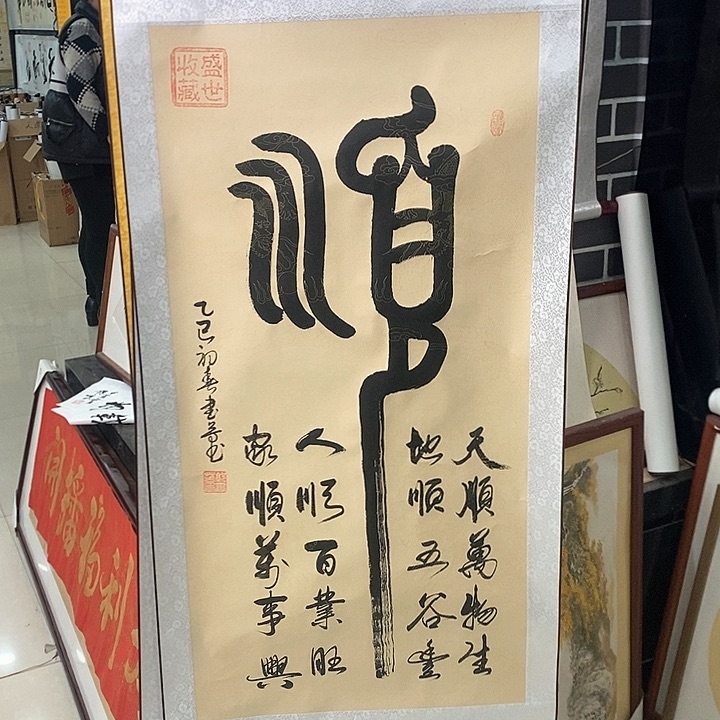 盛世
收藏
順
天順萬物生
地順五谷豐
人順百業旺
家順萬事興
乙巳初春書